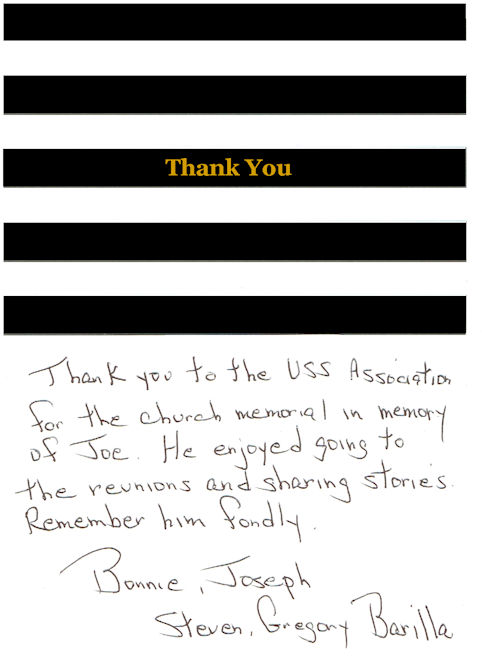 Thank You
Thank you to the USS Association
for the church memorial in memory
of Joe. He enjoyed going to
the reunions and sharing stories.
Remember him fondly.
Bonnie, Joseph
Steven, Gregory Barilla